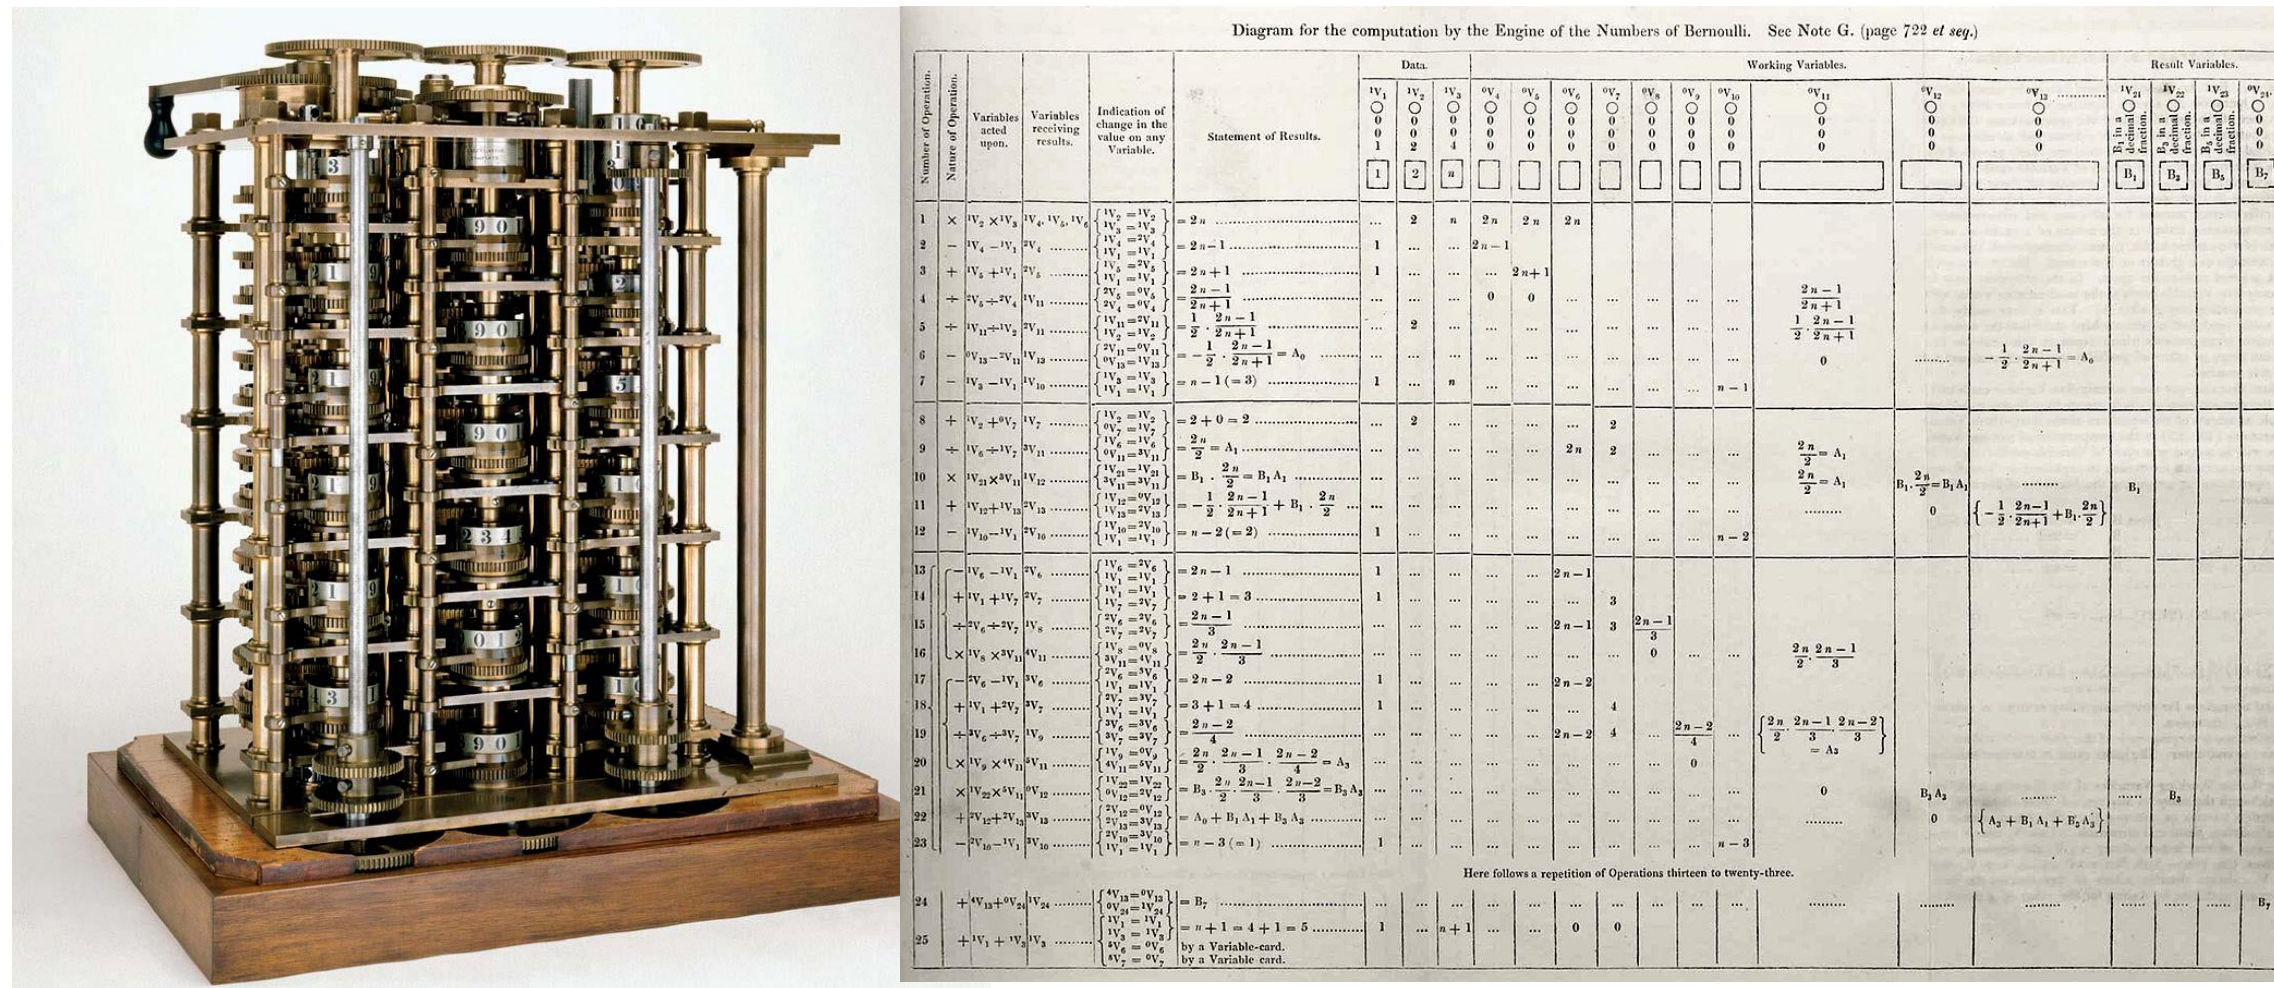 9 0
9 0
9 0
2 3 4
Diagram for the computation by the Engine of the Numbers of Bernoulli. See Note G. (page 722 et seq.)
Data. Working Variables. Result Variables.
Number of Operation. Nature of Operation. Variables acted upon. Variables receiving results. Indication of change in the value on any Variable. Statement of Results.
¹V₁ ¹V₂ ¹V₃ ⁰V₄ ⁰V₅ ⁰V₆ ⁰V₇ ⁰V₈ ⁰V₉ ⁰V₁₀ ⁰V₁₁ ⁰V₁₂ ⁰V₁₃ ............ ¹V₂₁ ¹V₂₂ ¹V₂₃ ⁰V₂₄.
○ ○ ○ ○ ○ ○ ○ ○ ○ ○ ○ ○ ○ ○ ○ ○ ○
0 0 0 0 0 0 0 0 0 0 0 0 0 B₁ in a decimal fraction. B₃ in a decimal fraction. B₅ in a decimal fraction. 0
0 0 0 0 0 0 0 0 0 0 0 0 0 0
1 2 4 0 0 0 0 0 0 0 0 0 0 0
1 2 n B₁ B₃ B₅ B₇
1 × ¹V₂ × ¹V₃ ¹V₄, ¹V₅, ¹V₆ {¹V₂ = ¹V₂ ¹V₃ = ¹V₃} = 2n ... 2 n 2n 2n 2n
2 − ¹V₄ − ¹V₁ ²V₄ {¹V₄ = ²V₄ ¹V₁ = ¹V₁} = 2n − 1 1 ... ... 2n − 1
3 + ¹V₅ + ¹V₁ ²V₅ {¹V₅ = ²V₅ ¹V₁ = ¹V₁} = 2n + 1 1 ... ... ... 2n + 1
4 ÷ ²V₅ ÷ ²V₄ ¹V₁₁ {²V₅ = ⁰V₅ ²V₄ = ⁰V₄} = (2n − 1)/(2n + 1) ... ... ... 0 0 ... ... ... ... ... (2n − 1)/(2n + 1)
5 ÷ ¹V₁₁ ÷ ¹V₂ ²V₁₁ {¹V₁₁ = ²V₁₁ ¹V₂ = ¹V₂} = 1/2 . (2n − 1)/(2n + 1) ... 2 ... ... ... ... ... ... ... ... 1/2 . (2n − 1)/(2n + 1)
6 − ⁰V₁₃ − ²V₁₁ ¹V₁₃ {²V₁₁ = ⁰V₁₁ ⁰V₁₃ = ¹V₁₃} = − 1/2 . (2n − 1)/(2n + 1) = A₀ ... ... ... ... ... ... ... ... ... ... 0 ........ − 1/2 . (2n − 1)/(2n + 1) = A₀
7 − ¹V₃ − ¹V₁ ¹V₁₀ {¹V₃ = ¹V₃ ¹V₁ = ¹V₁} = n − 1 (= 3) 1 ... n ... ... ... ... ... ... n − 1
8 + ¹V₂ + ⁰V₇ ¹V₇ {¹V₂ = ¹V₂ ⁰V₇ = ¹V₇} = 2 + 0 = 2 ... 2 ... ... ... ... 2
9 ÷ ¹V₆ ÷ ¹V₇ ³V₁₁ {¹V₆ = ¹V₆ ⁰V₁₁ = ³V₁₁} = 2n/2 = A₁ ... ... ... ... ... 2n 2 ... ... ... 2n/2 = A₁
10 × ¹V₂₁ × ³V₁₁ ¹V₁₂ {¹V₂₁ = ¹V₂₁ ³V₁₁ = ³V₁₁} = B₁ . 2n/2 = B₁ A₁ ... ... ... ... ... ... ... ... ... ... 2n/2 = A₁ B₁ . 2n/2 = B₁ A₁ ........ B₁
11 + ¹V₁₂ + ¹V₁₃ ²V₁₃ {¹V₁₂ = ⁰V₁₂ ¹V₁₃ = ²V₁₃} = − 1/2 . (2n − 1)/(2n + 1) + B₁ . 2n/2 ... ... ... ... ... ... ... ... ... ... ........ 0 {− 1/2 . (2n − 1)/(2n + 1) + B₁ . 2n/2}
12 − ¹V₁₀ − ¹V₁ ²V₁₀ {¹V₁₀ = ²V₁₀ ¹V₁ = ¹V₁} = n − 2 (= 2) 1 ... ... ... ... ... ... ... ... n − 2
13 − ¹V₆ − ¹V₁ ²V₆ {¹V₆ = ²V₆ ¹V₁ = ¹V₁} = 2n − 1 1 ... ... ... ... 2n − 1
14 + ¹V₁ + ¹V₇ ²V₇ {¹V₁ = ¹V₁ ¹V₇ = ²V₇} = 2 + 1 = 3 1 ... ... ... ... ... 3
15 ÷ ²V₆ ÷ ²V₇ ¹V₈ {²V₆ = ²V₆ ²V₇ = ²V₇} = (2n − 1)/3 ... ... ... ... ... 2n − 1 3 (2n − 1)/3
16 × ¹V₈ × ³V₁₁ ⁴V₁₁ {¹V₈ = ⁰V₈ ³V₁₁ = ⁴V₁₁} = 2n/2 . (2n − 1)/3 ... ... ... ... ... ... ... 0 ... ... 2n/2 . (2n − 1)/3
17 − ²V₆ − ¹V₁ ³V₆ {²V₆ = ³V₆ ¹V₁ = ¹V₁} = 2n − 2 1 ... ... ... ... 2n − 2
18 + ¹V₁ + ²V₇ ³V₇ {²V₇ = ³V₇ ¹V₁ = ¹V₁} = 3 + 1 = 4 1 ... ... ... ... ... 4
19 ÷ ³V₆ ÷ ³V₇ ¹V₉ {³V₆ = ³V₆ ³V₇ = ³V₇} = (2n − 2)/4 ... ... ... ... ... 2n − 2 4 ... (2n − 2)/4 ... {2n/2 . (2n − 1)/3 . (2n − 2)/3} = A₃
20 × ¹V₉ × ⁴V₁₁ ⁵V₁₁ {¹V₉ = ⁰V₉ ⁴V₁₁ = ⁵V₁₁} = 2n/2 . (2n − 1)/3 . (2n − 2)/4 = A₃ ... ... ... ... ... ... ... ... 0 ...
21 × ¹V₂₂ × ⁵V₁₁ ⁰V₁₂ {¹V₂₂ = ¹V₂₂ ⁰V₁₂ = ²V₁₂} = B₃ . 2n/2 . (2n − 1)/3 . (2n − 2)/3 = B₃ A₃ ... ... ... ... ... ... ... ... ... ... 0 B₃ A₃ ........ ...... B₃
22 + ²V₁₂ + ²V₁₃ ³V₁₃ {²V₁₂ = ⁰V₁₂ ²V₁₃ = ³V₁₃} = A₀ + B₁ A₁ + B₃ A₃ ... ... ... ... ... ... ... ... ... ... ........ 0 {A₃ + B₁ A₁ + B₃ A₃}
23 − ²V₁₀ − ¹V₁ ³V₁₀ {²V₁₀ = ³V₁₀ ¹V₁ = ¹V₁} = n − 3 (= 1) 1 ... ... ... ... ... ... ... ... n − 3
Here follows a repetition of Operations thirteen to twenty-three.
24 + ⁴V₁₃ + ⁰V₂₄ ¹V₂₄ {⁴V₁₃ = ⁰V₁₃ ⁰V₂₄ = ¹V₂₄} = B₇ ... ... ... ... ... ... ... ... ... ... ........ ........ ........ ...... ...... ...... B₇
25 + ¹V₁ + ¹V₃ ¹V₃ {¹V₁ = ¹V₁ ¹V₃ = ¹V₃ ⁵V₆ = ⁰V₆ ⁵V₇ = ⁰V₇} = n + 1 = 4 + 1 = 5 1 ... n + 1 ... ... 0 0
by a Variable-card.
by a Variable card.